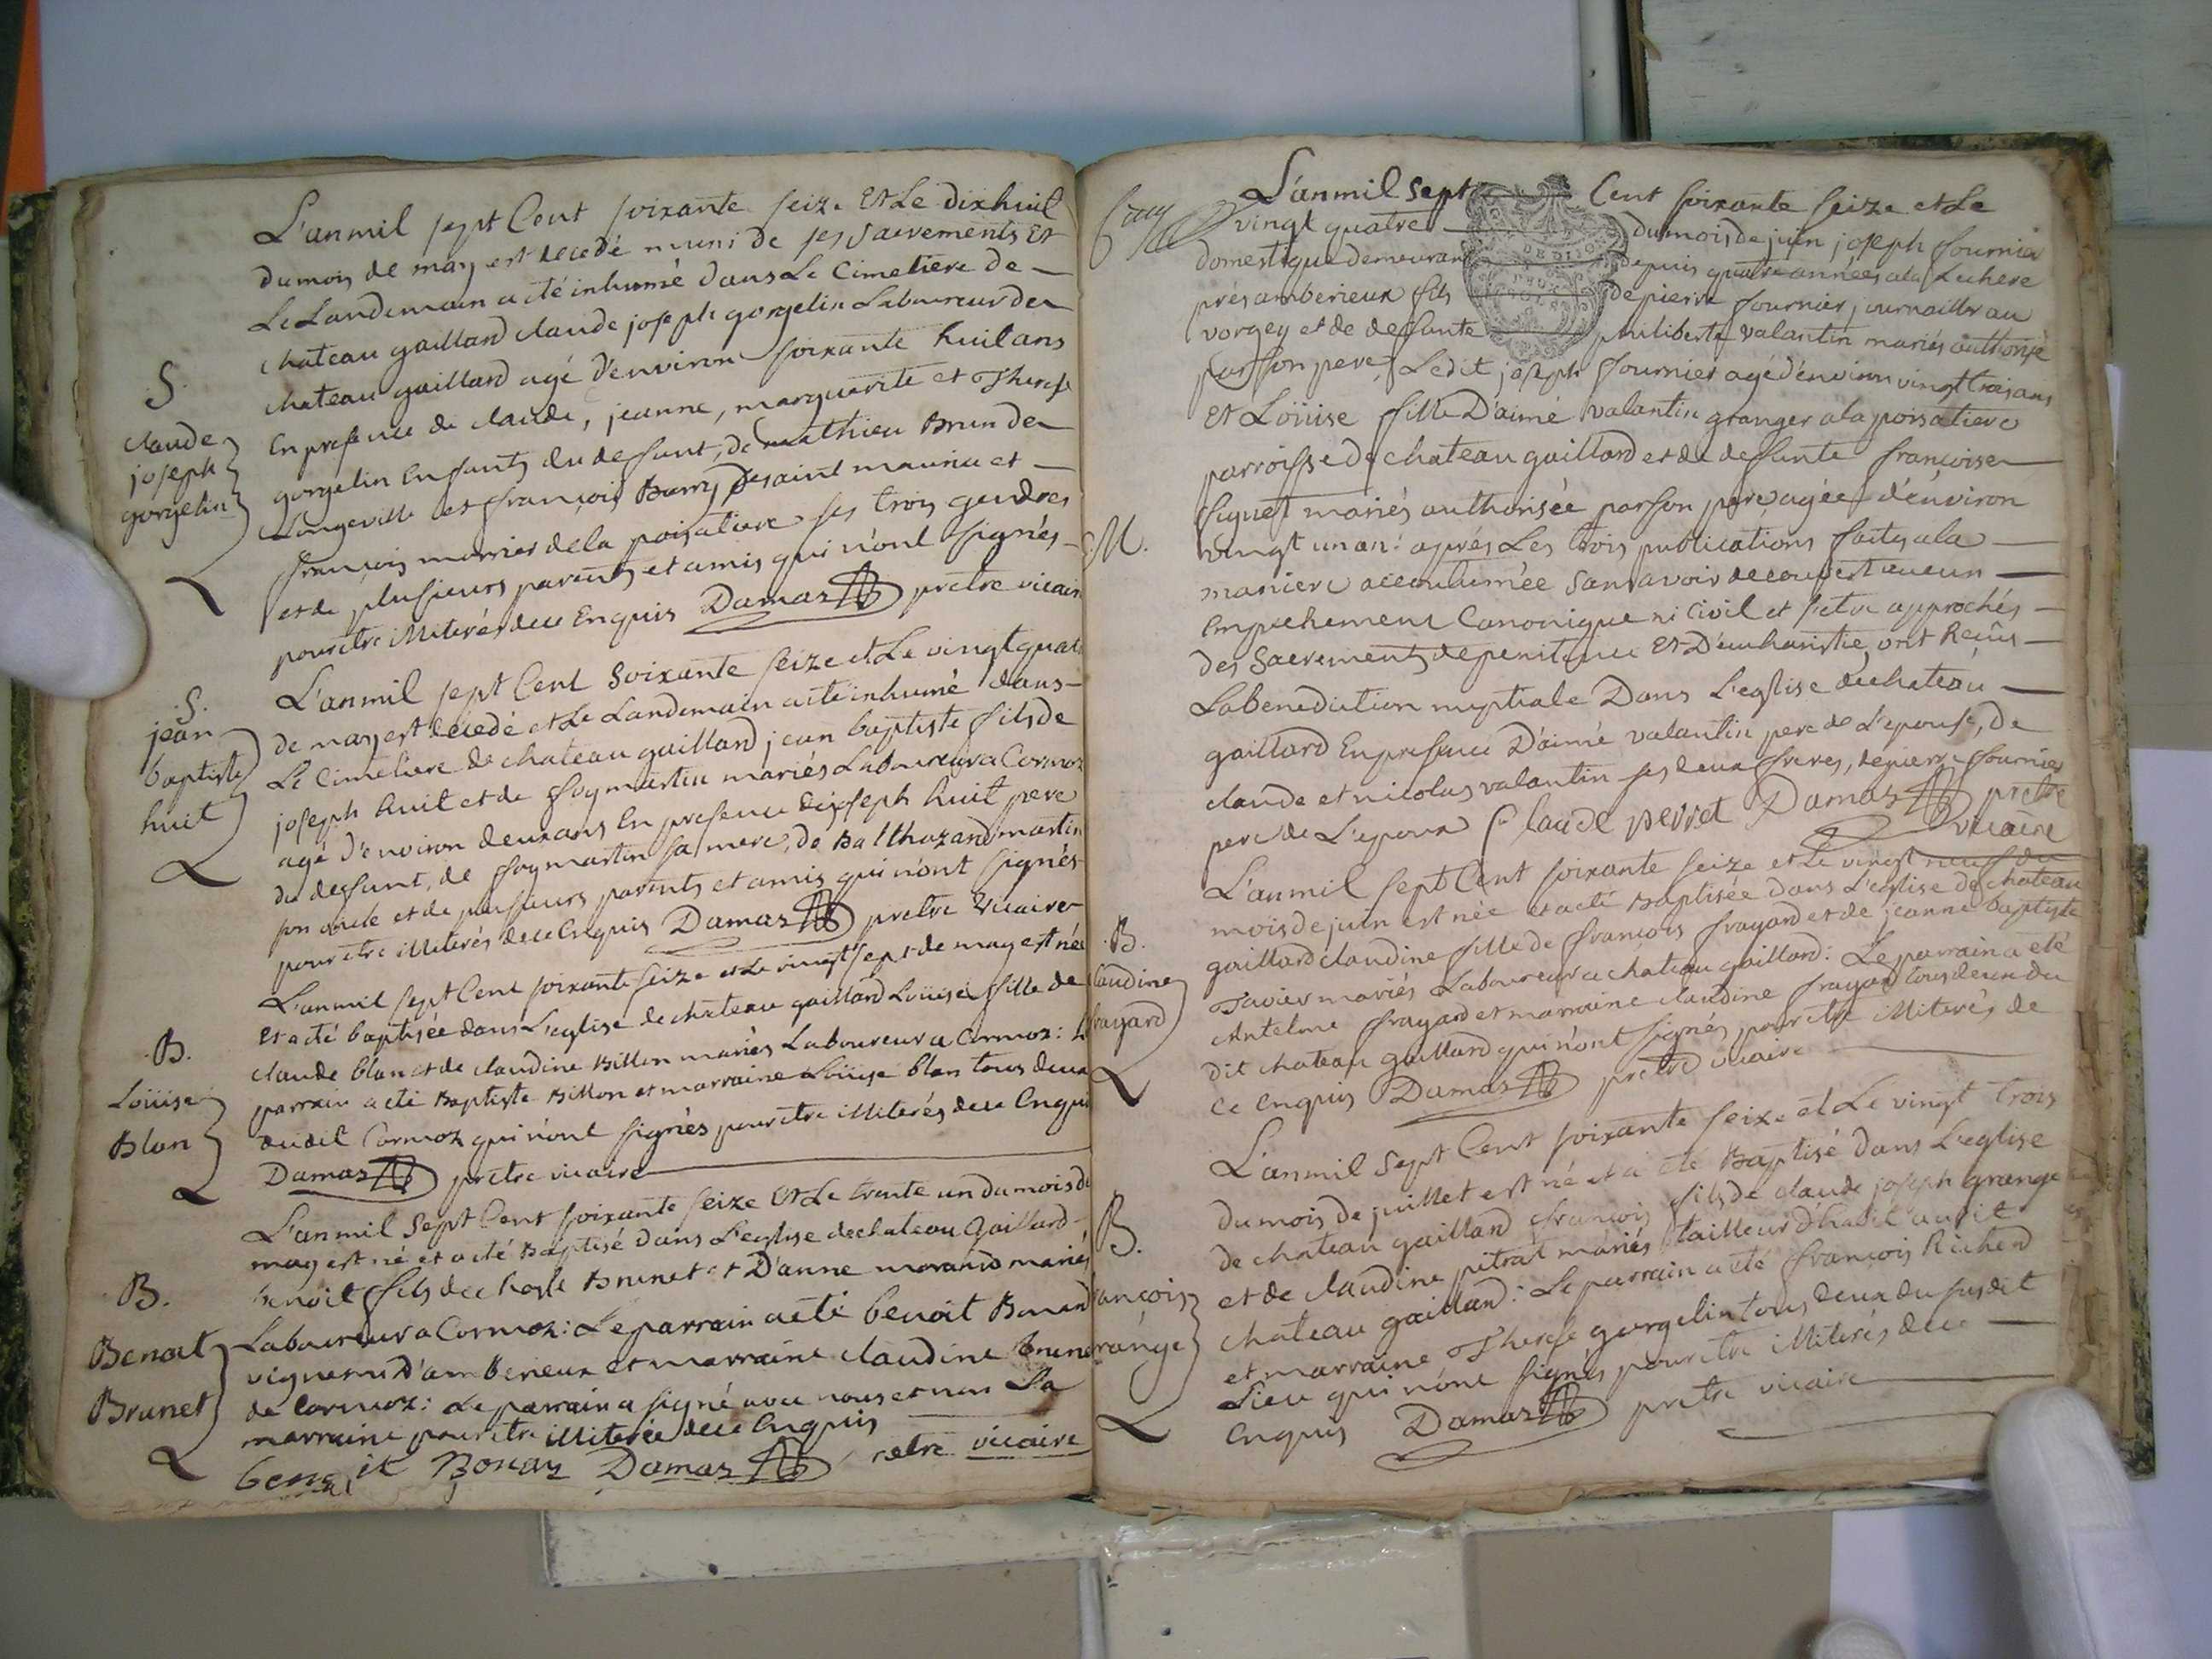 L'an mil sept Cent soixante seize Et Le dixhuit
du mois de may est decedé muni de ses Sacrements Et
Le Landemain a été inhumé dans Le Cimetiere de
chateau gaillard claude joseph gorgelin Laboureur de
chateau gaillard agé d'environ soixante huit ans
En presence de claude, jeanne, marguerite et Therese
gorgelin Enfants du defunt, de mathieu Brun de
Longeville et françois Barry de saint maurice et
françois marrier de la poisatiere ses trois gendres
et de plusieurs parents et amis qui n'ont signés
pour être illiterés de ce Enquis Damaz prêtre vicaire
S.
claude
joseph
gorgelin
L'an mil sept Cent Soixante seize et Le vingt quatre
de may est décedé et Le Landemain a été inhumé dans
Le Cimetiere de chateau gaillard jean baptiste fils de
joseph huit et de foy martin mariés Laboureur a Cormoz
agé d'environ deux ans En presence de joseph huit pere
du defunt, de foy martin sa mere, de Balthazard martin
son oncle et de plusieurs parents et amis qui n'ont signés
pour être illiterés de ce Enquis Damaz prêtre vicaire
.S.
jean
baptiste
huit
L'an mil sept Cent soixante seize et Le vingt sept de may est née
Et a été baptisée dans L'eglise de chateau gaillard Loüise fille de
claude blan et de claudine Billon mariés Laboureur a Cormoz: Le
parrain a été Baptiste Billon et marraine Loüise blan tous deux
dudit Cormoz qui n'ont signés pour être illiterés de ce Enquis
Damaz prêtre vicaire
.B.
Loüise
Blan
L'an mil Sept Cent soixante seize Et Le trente un du mois de
may est né et a été Baptisé dans L'eglise de chateau Gaillard
benoit fils de charle Brunet et D'anne morand mariés
Laboureur a Cormoz: Le parrain a été benoit Bonan
vigneron D'amberieux et marraine claudine Brunet
de Cormoz: Le parrain a signé avec nous et non La
marraine pour être illiterée de ce Enquis
benoit Bonan Damaz prêtre vicaire
.B.
Benoit
Brunet
L'an mil Sept Cent soixante seize et Le
vingt quatre du mois de juin joseph fournier
domestique demeurant depuis quatre années a la Lechere
près amberieux fils de pierre fournier journallier au
vorgey et de defunte philiberte valantin mariés authorisé
par son pere, Ledit joseph fournier agé d'environ vingt trois ans
Et Loüise fille D'aimé valantin granger a la poisatiere
parroisse de chateau gaillard et de defunte françoise
Siguet mariés authorisée par son pere agée d'environ
vingt un an: après Les trois publications faites a la
maniere accoutumée Sans avoir decouvert aucun
empechement Canonique ni Civil et s'etre approchés
des Sacrements de penitence Et D'eucharistie, ont Reçus
La Benediction nuptiale Dans L'eglise de chateau
gaillard En presence D'aimé valantin pere de L'epouse, de
claude et nicolas valantin ses deux freres, de pierre fournier
pere de L'epoux Claude perret Damaz prêtre
vicaire
M.
L'an mil sept Cent soixante seize et Le vingt neuf du
mois de juin est née et a été Baptisée dans L'eglise de chateau
gaillard claudine fille de françois frayard et de jeanne baptiste
Tavier mariés Laboureur a chateau gaillard: Le parrain a été
Antelme frayard et marraine claudine frayard tous deux du
dit chateau gaillard qui n'ont signés pour être illiterés de
ce Enquis Damaz prêtre vicaire
.B.
laudine
rayard
L'an mil Sept Cent soixante seize et Le vingt trois
du mois de juillet est né et a été Baptisé dans L'eglise
de chateau gaillard françois fils de claude joseph grange
et de claudine pitrat mariés tailleur d'habit audit
chateau gaillard: Le parrain a été françois Richerd
et marraine Therese gorgelin tous deux du susdit
Lieu qui n'ont signés pour être illiterés de ce
Enquis Damaz prêtre vicaire
B.
ançois
range